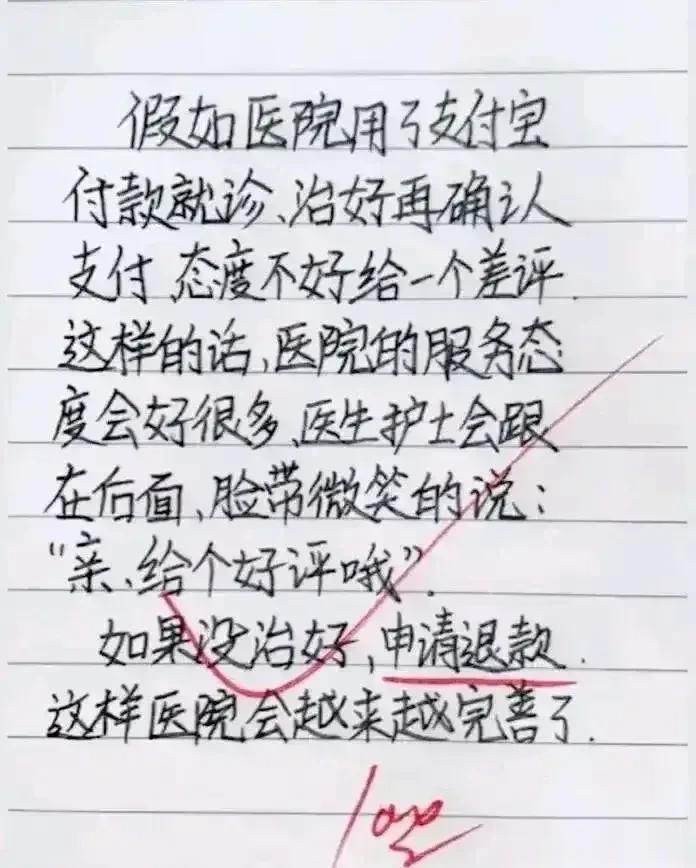 假如医院用了支付宝
付款就诊、治好再确认
支付、态度不好给一个差评.
这样的话、医院的服务态
度会好很多、医生护士会跟
在后面、脸带微笑的说：
“亲、给个好评哦”.
如果没治好,申请退款.
这样医院会越来越完善了.
100